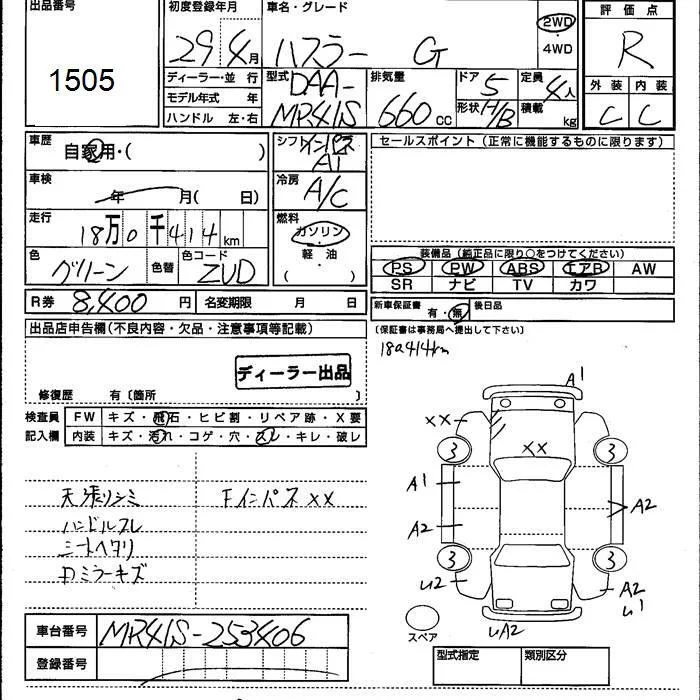 出品番号
1505
初度登録年月
29年4月
車名・グレード
ハスラー G
2WD
・
4WD
評価点
R
ディーラー・並行
モデル年式 年
ハンドル 左・右
型式
DAA-
MR41S
排気量
660cc
ドア 5
形状 H/B
定員 4人
積載 kg
外装 内装
C C
車歴
自家用・( )
シフト インパネ
A1
セールスポイント(正常に機能するものに限ります)
車検
年 月( 日)
冷房
A/C
走行
18万0千414km
燃料
ガソリン
・
軽・油
( )
色
グリーン
色替
色コード
ZUD
装備品(純正品に限り○をつけてください)
PS PW ABS エアB AW
SR ナビ TV カワ
R券 8,400円 名変期限 月 日
新車保証書 有・無 後日品
(保証書は事務局へ提出して下さい)
出品店申告欄(不良内容・欠品・注意事項等記載)
ディーラー出品
修復歴 有〔箇所 〕
検査員
記入欄
FW キズ・飛石・ヒビ割・リペア跡・X要
内装 キズ・汚れ・コゲ・穴・スレ・キレ・破レ
天張りシミ
ハンドルスレ
シートヘタリ
Dミラーキズ
FインパネXX
A1
XX
XX
3
3
A1
A2
A2
3
3
A2
スペア
車台番号 MR41S-253406
登録番号
型式指定 類別区分